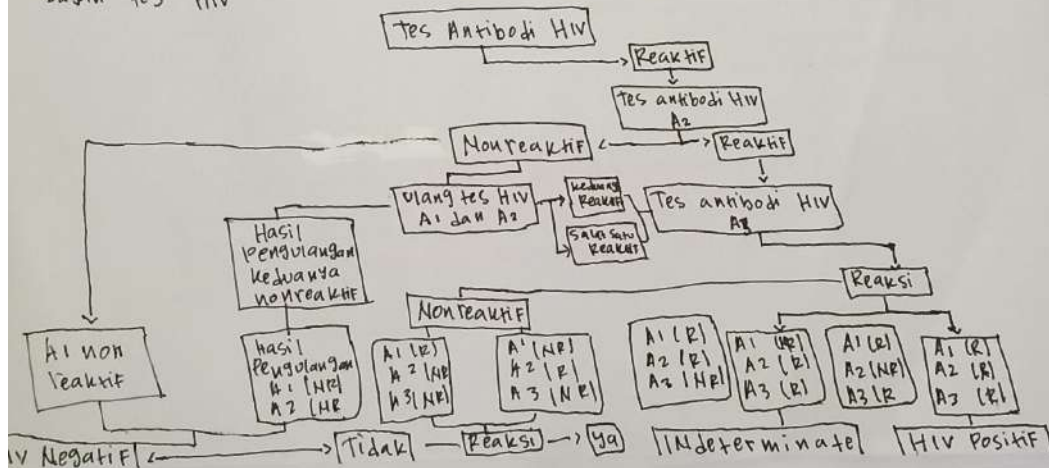 tes HIV
Tes Antibodi HIV
Reaktif
Tes antibodi HIV
A2
Nonreaktif
Reaktif
Ulang tes HIV
A1 dan A2
keduanya
Reaktif
Salah satu
Reaktif
Tes antibodi HIV
Hasil
pengulangan
keduanya
nonreaktif
Reaksi
Nonreaktif
A1 non
reaktif
Hasil
Pengulangan
A1 (NR)
A2 (NR
A1 (R)
A2 (NR)
A3 (NR)
A1 (NR)
A2 (R)
A3 (NR)
A1 (R)
A2 (R)
A3 (NR)
A1 (NR)
A2 (R)
A3 (R)
A1 (R)
A2 (NR)
A3 (R
A1 (R)
A2 (R)
A3 (R)
IV Negatif
Tidak
Reaksi
Ya
INdeterminate
HIV Positif